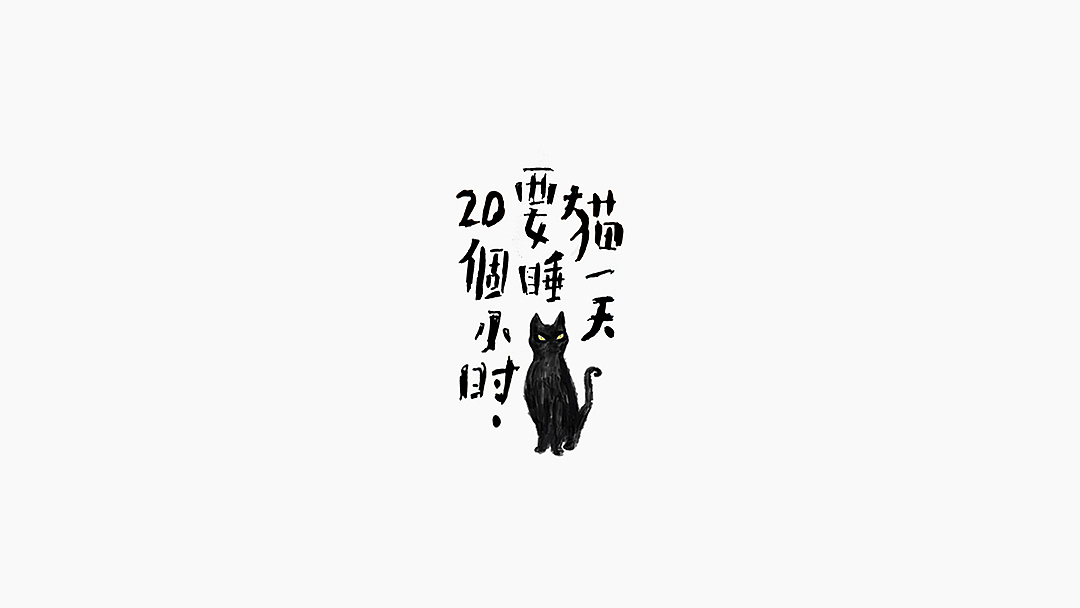 猫一天
要睡
20個小时.